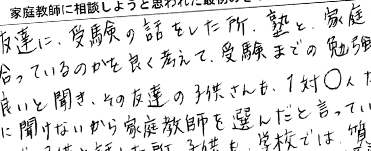 家庭教師に相談しようと思われた最初の
友達に、受験の話をした所、塾と、家庭
合っているのかを良く考えて、受験までの勉強
良いと聞き、その友達の子供さんも、1対〇人だ
に聞けないから家庭教師を選んだと言ってい
子供と話した所、子供も、学校では、質